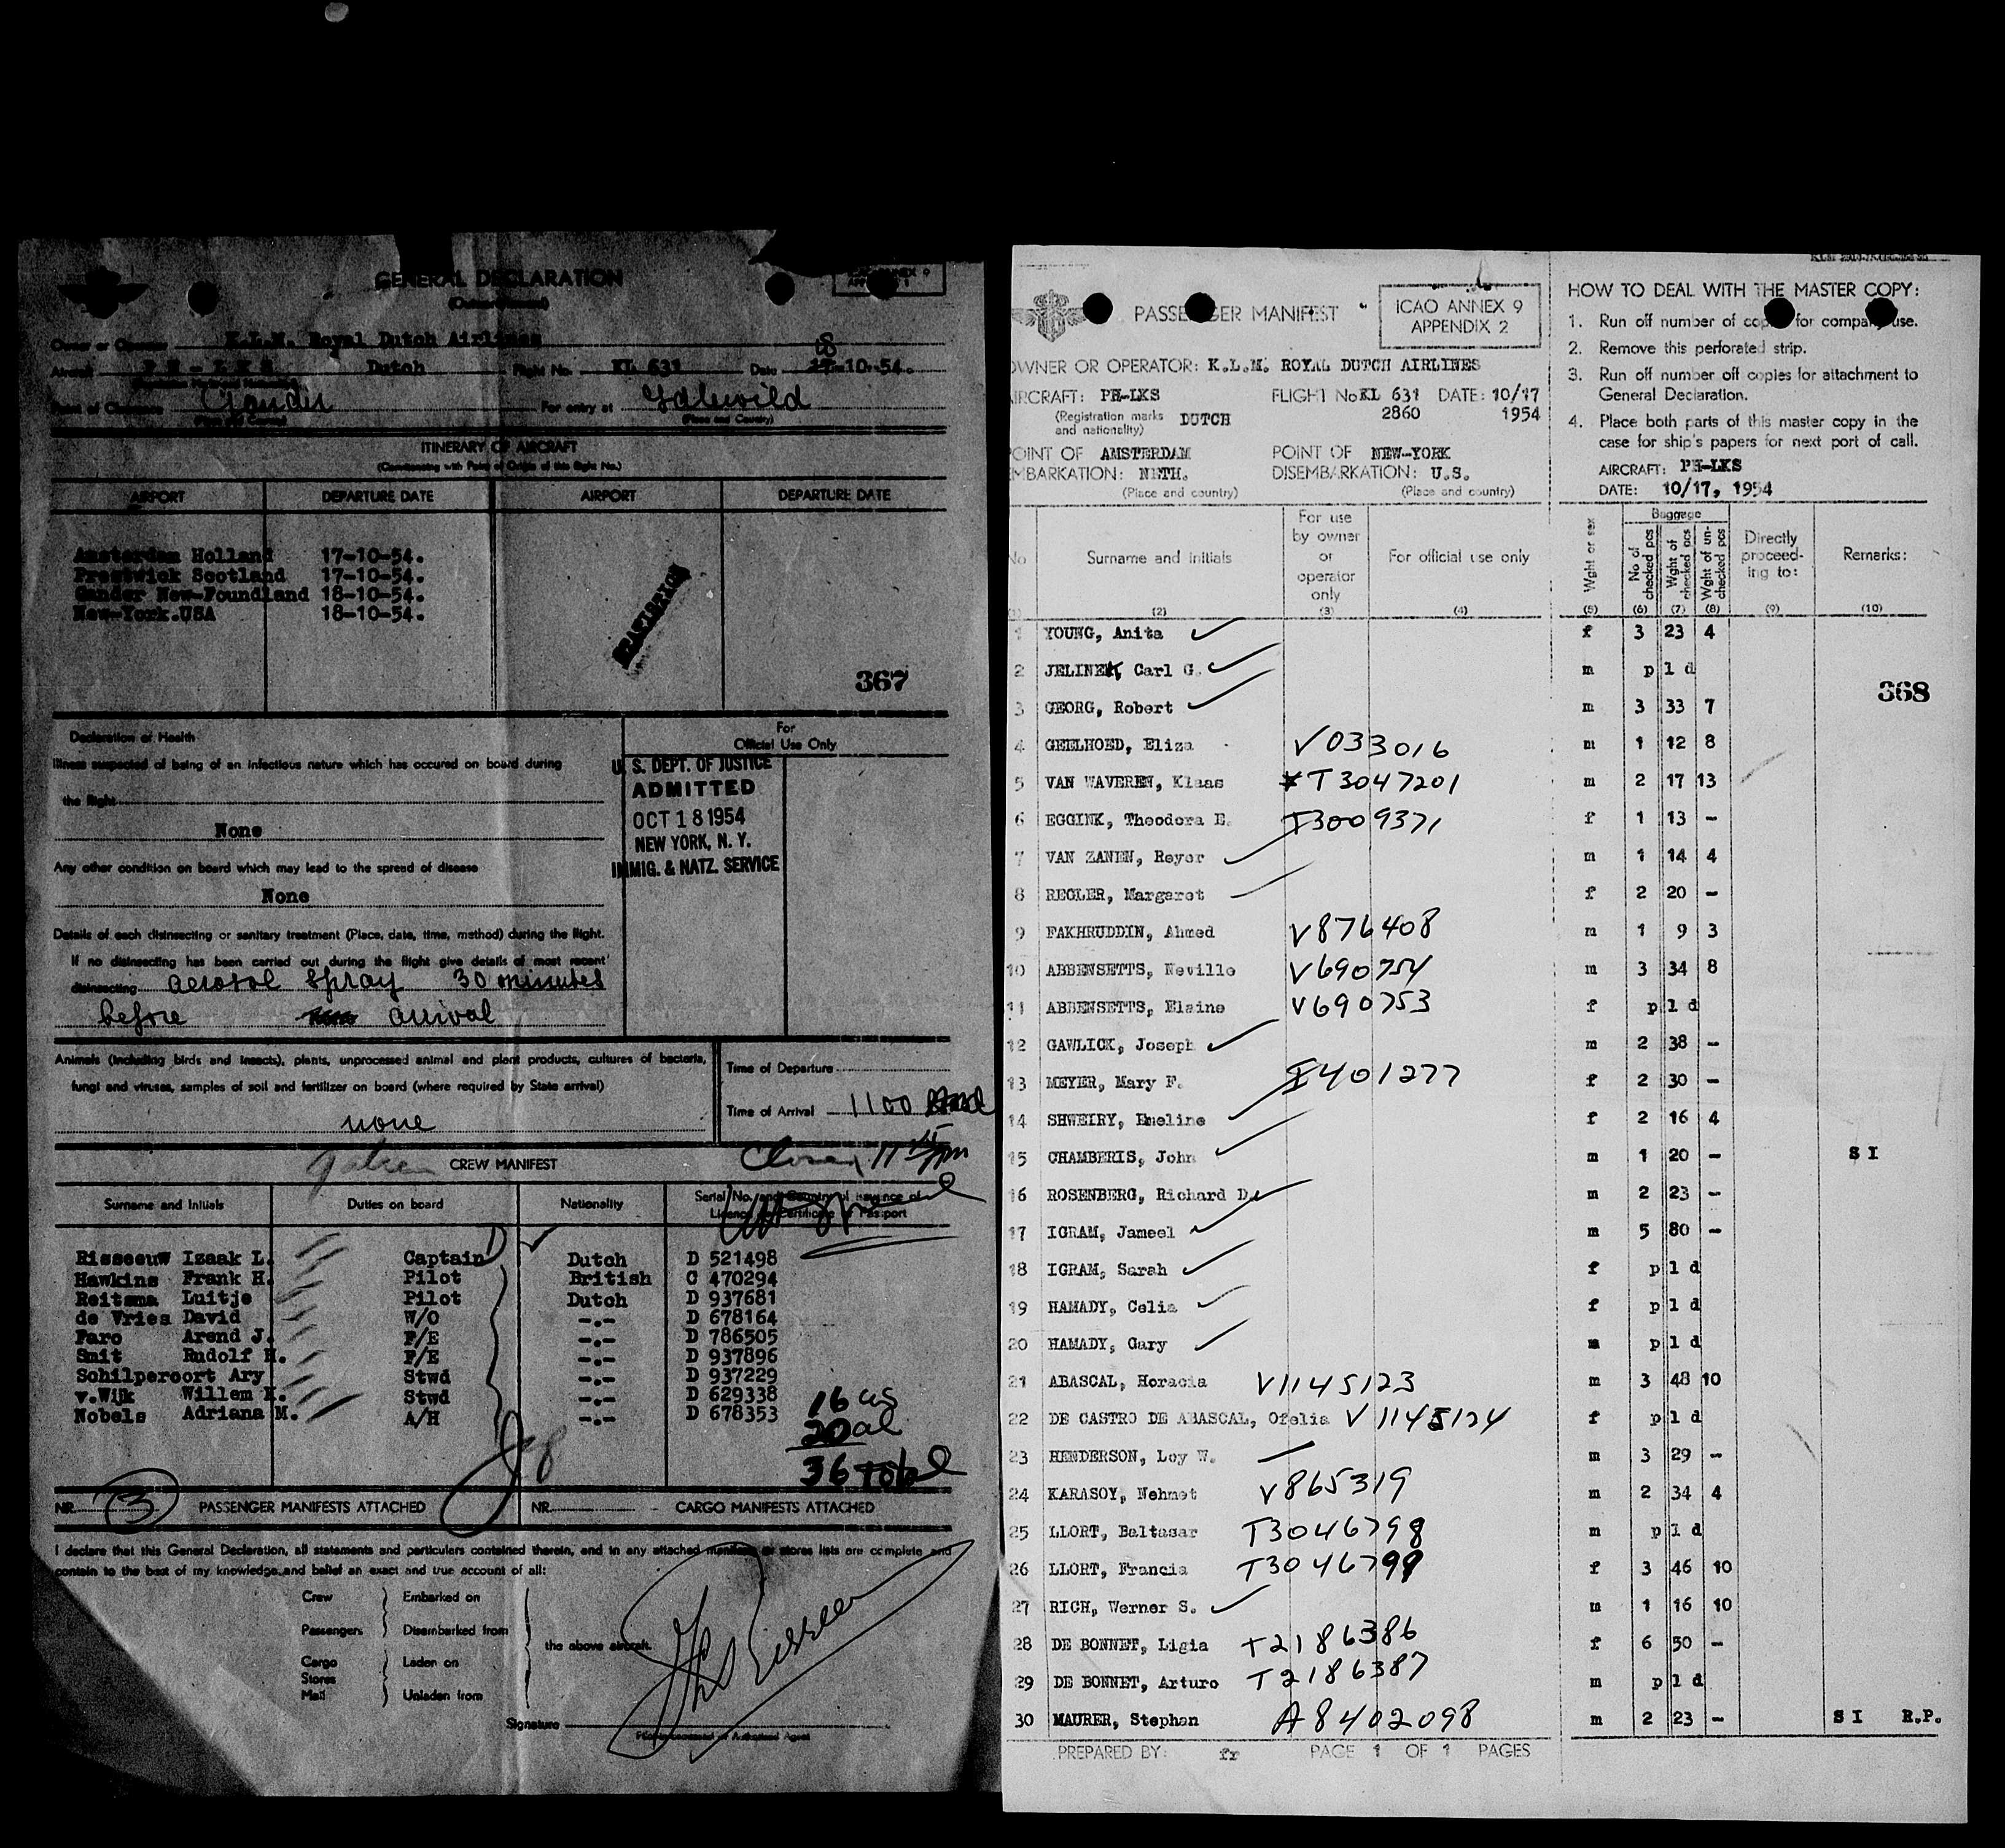 GENERAL DECLARATION
Owner or Operator K.L.M. Royal Dutch Airlines
Aircraft PH-LKS Dutch Flight No. KL 631 Date 18-10-54.
Point of Clearance Gander For entry at Idlewild
(Place and Country) (Place and Country)
ITINERARY OF AIRCRAFT
(Commencing with Point of Origin of this flight No.)
AIRPORT DEPARTURE DATE AIRPORT DEPARTURE DATE
Amsterdam Holland 17-10-54.
Prestwick Scotland 17-10-54.
Gander New-Foundland 18-10-54.
New-York.USA 18-10-54.
367
Declaration of Health
For
Official Use Only
Illness suspected of being of an infectious nature which has occured on board during
the flight
None
Any other condition on board which may lead to the spread of disease
None
U. S. DEPT. OF JUSTICE
ADMITTED
OCT 18 1954
NEW YORK, N. Y.
IMMIG. & NATZ. SERVICE
Details of each disinsecting or sanitary treatment (Place, date, time, method) during the flight.
If no disinsecting has been carried out during the flight give details of most recent
disinsecting aerosol spray 30 minutes
before arrival
Animals (including birds and insects), plants, unprocessed animal and plant products, cultures of bacteria,
fungi and viruses, samples of soil and fertilizer on board (where required by State arrival)
none
Time of Departure
Time of Arrival 1100
CREW MANIFEST
Surname and Initials Duties on board Nationality Serial No. and Country of issuance of
Licence or Certificate or Passport
Risseeuw Izaak L. Captain Dutch D 521498
Hawkins Frank H. Pilot British C 470294
Reitsma Luitje Pilot Dutch D 937681
de Vries David W/O -.- D 678164
Faro Arend J. F/E -.- D 786505
Smit Rudolf H. F/E -.- D 937896
Schilperoort Ary Stwd -.- D 937229
v.Wijk Willem K. Stwd -.- D 629338
Nobels Adriana M. A/H -.- D 678353
16 us
20 al
36 Total
NR. 3 PASSENGER MANIFESTS ATTACHED NR. CARGO MANIFESTS ATTACHED
I declare that this General Declaration, all statements and particulars contained therein, and in any attached manifests or stores lists are complete and
contain to the best of my knowledge and belief an exact and true account of all:
Crew Embarked on
Passengers Disembarked from
the above aircraft.
Cargo Laden on
Stores
Mail Unladen from
Signature
PASSENGER MANIFEST
ICAO ANNEX 9
APPENDIX 2
OWNER OR OPERATOR: K.L.M. ROYAL DUTCH AIRLINES
AIRCRAFT: PH-LKS FLIGHT No KL 631 DATE: 10/17
(Registration marks and nationality) DUTCH 2860 1954
POINT OF EMBARKATION: AMSTERDAM NETH. POINT OF DISEMBARKATION: NEW-YORK U.S.
(Place and country) (Place and country)
HOW TO DEAL WITH THE MASTER COPY:
1. Run off number of copies for company use.
2. Remove this perforated strip.
3. Run off number off copies for attachment to
General Declaration.
4. Place both parts of this master copy in the
case for ship's papers for next port of call.
AIRCRAFT: PH-LKS
DATE: 10/17, 1954
No Surname and initials For use by owner or operator only For official use only Wght or sex Baggage No of checked pcs Wght of checked pcs Wght of un-checked pcs Directly proceeding to: Remarks:
(1) (2) (3) (4) (5) (6) (7) (8) (9) (10)
1 YOUNG, Anita f 3 23 4
2 JELINEK, Carl G. m p l d
368
3 GEORG, Robert m 3 33 7
4 GEELHOED, Eliza V033016 m 1 12 8
5 VAN WAVEREN, Klaas T3047201 m 2 17 13
6 EGGINK, Theodora E. T3009371 f 1 13 -
7 VAN ZANEN, Reyer m 1 14 4
8 REGLER, Margaret f 2 20 -
9 FAKHRUDDIN, Ahmed V876408 m 1 9 3
10 ABBENSETTS, Neville V690754 m 3 34 8
11 ABBENSETTS, Elaine V690753 f p l d
12 GAWLICK, Joseph m 2 38 -
13 MEYER, Mary F. I401277 f 2 30 -
14 SHWEIRY, Emeline f 2 16 4
15 CHAMBERIS, John m 1 20 - S I
16 ROSENBERG, Richard D. m 2 23 -
17 IGRAM, Jameel m 5 80 -
18 IGRAM, Sarah f p l d
19 HAMADY, Celia f p l d
20 HAMADY, Gary m p l d
21 ABASCAL, Horacia V1145123 m 3 48 10
22 DE CASTRO DE ABASCAL, Ofelia V1145124 f p l d
23 HENDERSON, Loy W. m 3 29 -
24 KARASOY, Mehmet V865319 m 2 34 4
25 LLORT, Baltasar T3046798 m p l d
26 LLORT, Francia T3046799 f 3 46 10
27 RICH, Werner S. m 1 16 10
28 DE BONNET, Ligia T2186386 f 6 50 -
29 DE BONNET, Arturo T2186387 m p l d
30 MAURER, Stephan A8402098 m 2 23 - S I R.P.
PREPARED BY: fr PAGE 1 OF 1 PAGES